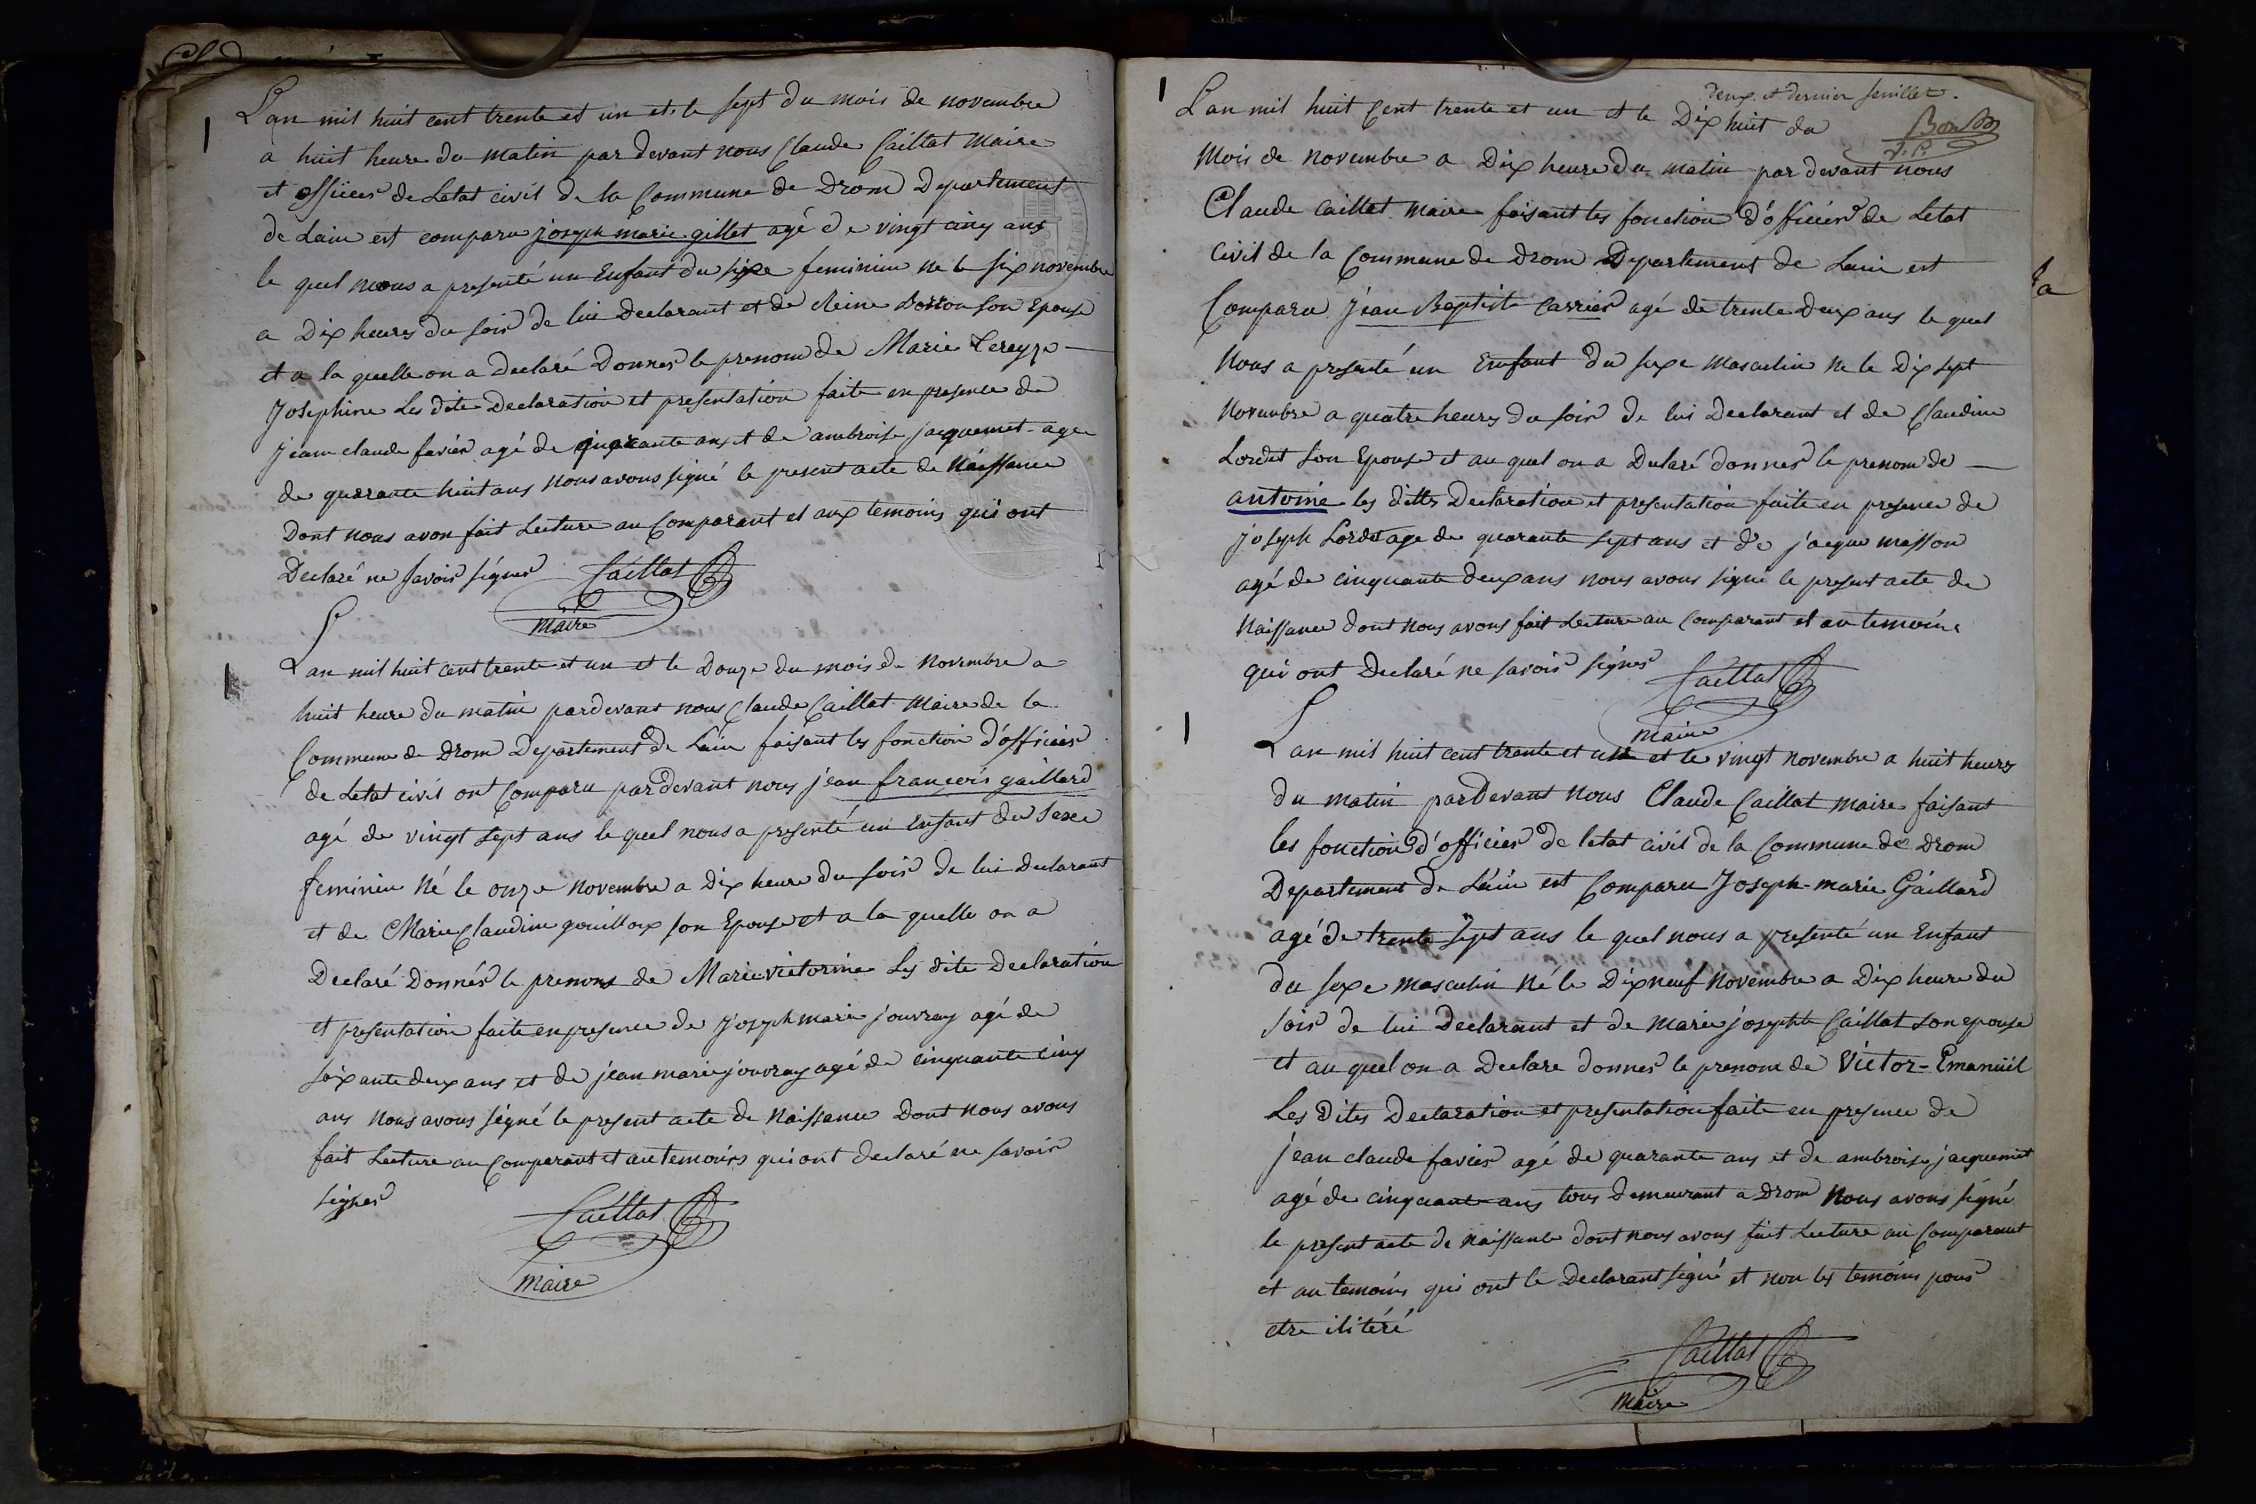 Lan mil huit cent trente et un et le sept du mois de novembre
a huit heure du matin par devant nous Claude Caillat Maire
et officier de Letat civil de la Commune de Drom Departement
de Lain est comparu joseph marie gillet agé de vingt cinq ans
le quel nous a presenté un Enfant du sixe feminin ne le six novembre
a Dix heures du soir de lui Declarant et de Reine son Epouse
et a la quelle on a declaré Donner le prenom de Marie
Josephine Les dite Declaration et presentation faite en presence de
jean claude favier agé de quarante ans et de ambroise jacquemet age
de quarante huit ans nous avons signé le present acte de Naissance
Dont nous avon fait Lecture au Comparant et aux temoins qui ont
Declaré ne savoir signer Caillat
maire
Lan mil huit cent trente et un et le Douze du mois de Novembre a
huit heure du matin pardevant nous Claude Caillat Maire de la
Commune de Drom Departement de Lain faisant les fonction d'officier
de Letat civil ont Comparu par devant nous jean françois gaillard
agé de vingt sept ans le quel nous a presenté un Enfant du Sexe
feminin Né le onze novembre a Dix heure du soir de lui Declarant
et de Marie Claudine gouilloux son Epouse et a la quelle on a
Declaré Donner le prenom de Marie victorine Les dite Declaration
et presentation faite en presence de joseph marie jouvray agé de
soixante deux ans et de jean marie jouvray agé de cinquante cinq
ans nous avons signé le present acte de Naissance Dont nous avons
fait Lecture au Comparant et au temoins qui ont declaré ne savoir
signer
Caillat
maire
deux. et dernier feuillet.
V. P.
Lan mil huit Cent trente et un et le Dix huit du
Mois de novembre a Dix heure du matin par devant nous
Claude Caillat Maire faisant les fonction d'officier de Letat
Civil de la Commune de Drom Departement de Lain est
Comparu jean Baptiste Carrier agé de trente Deux ans le quel
Nous a presenté un Enfant du sexe Masculin Ne le Dix sept
Novembre a quatre heures du soir de lui Declarant et de Claudine
Lordet son Epouse et au quel on a Declaré donner le prenom de
antoine les dittes Declaration et presentation faite en presence de
joseph Lordet age de quarante sept ans et de jacque masson
agé de cinquante deux ans nous avons signé le present acte de
Naissance dont nous avons fait Lecture au Comparant et au temoins
qui ont Declaré ne savoir signer Caillat
maire
Lan mil huit cent trente et un et le vingt novembre a huit heures
du matin par Devant Nous Claude Caillat maire faisant
les fonction d'officier de letat civil de la Commune de Drom
Departement de Lain est Comparu Joseph-marie Gaillard
agé de trente sept ans le quel nous a presenté un Enfant
du sexe masculin Né le Dix neuf Novembre a Dix heure du
soir de lui Declarant et de Marie josephte Caillat son epouse
et au quel on a Declare donner le prenom de Victor-Emanuïel
Les dites Declaration et presentation faite en presence de
jean claude favier agé de quarante ans et de ambroise jacquemet
agé de cinquante ans tous Demeurant a Drom Nous avons signé
le present acte de Naissance dont nous avons fait Lecture au Comparant
et au temoins qui ont le Declarant signé et non les temoins pour
etre ilitéré
Caillat
maire